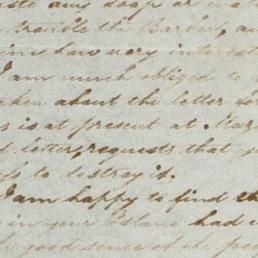 any soap or wat
trouble the Barber, a
how very interest
I am much obliged to
about the letter
is at present at Mar
letter, requests that y
to destroy it.
I am happy to find th
in your Island had
good sense of the peo